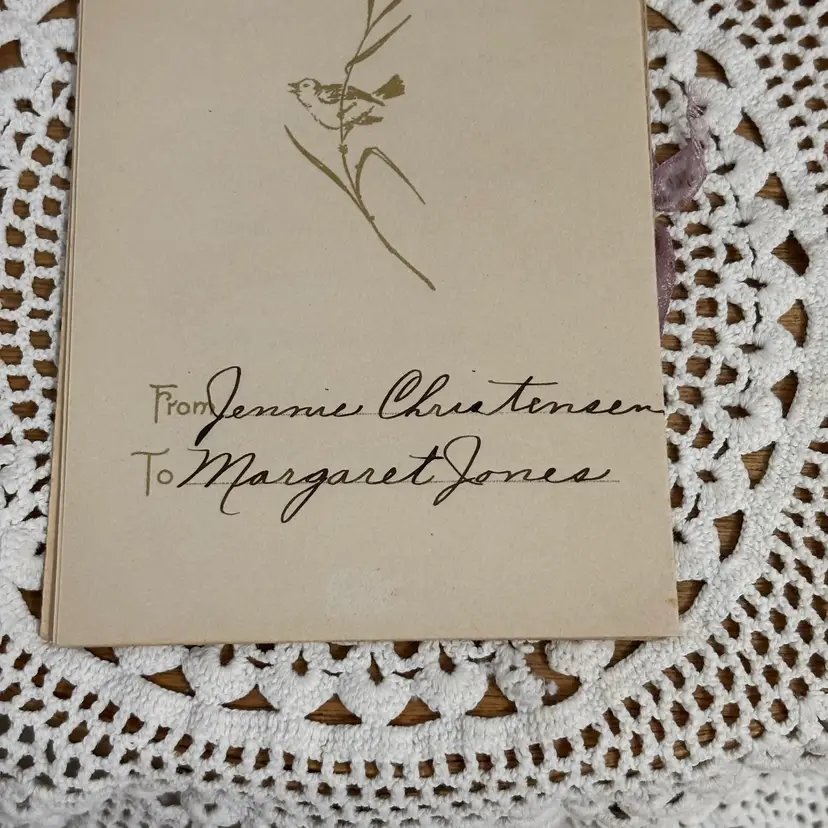 From Jennie Christensen
To Margaret Jones